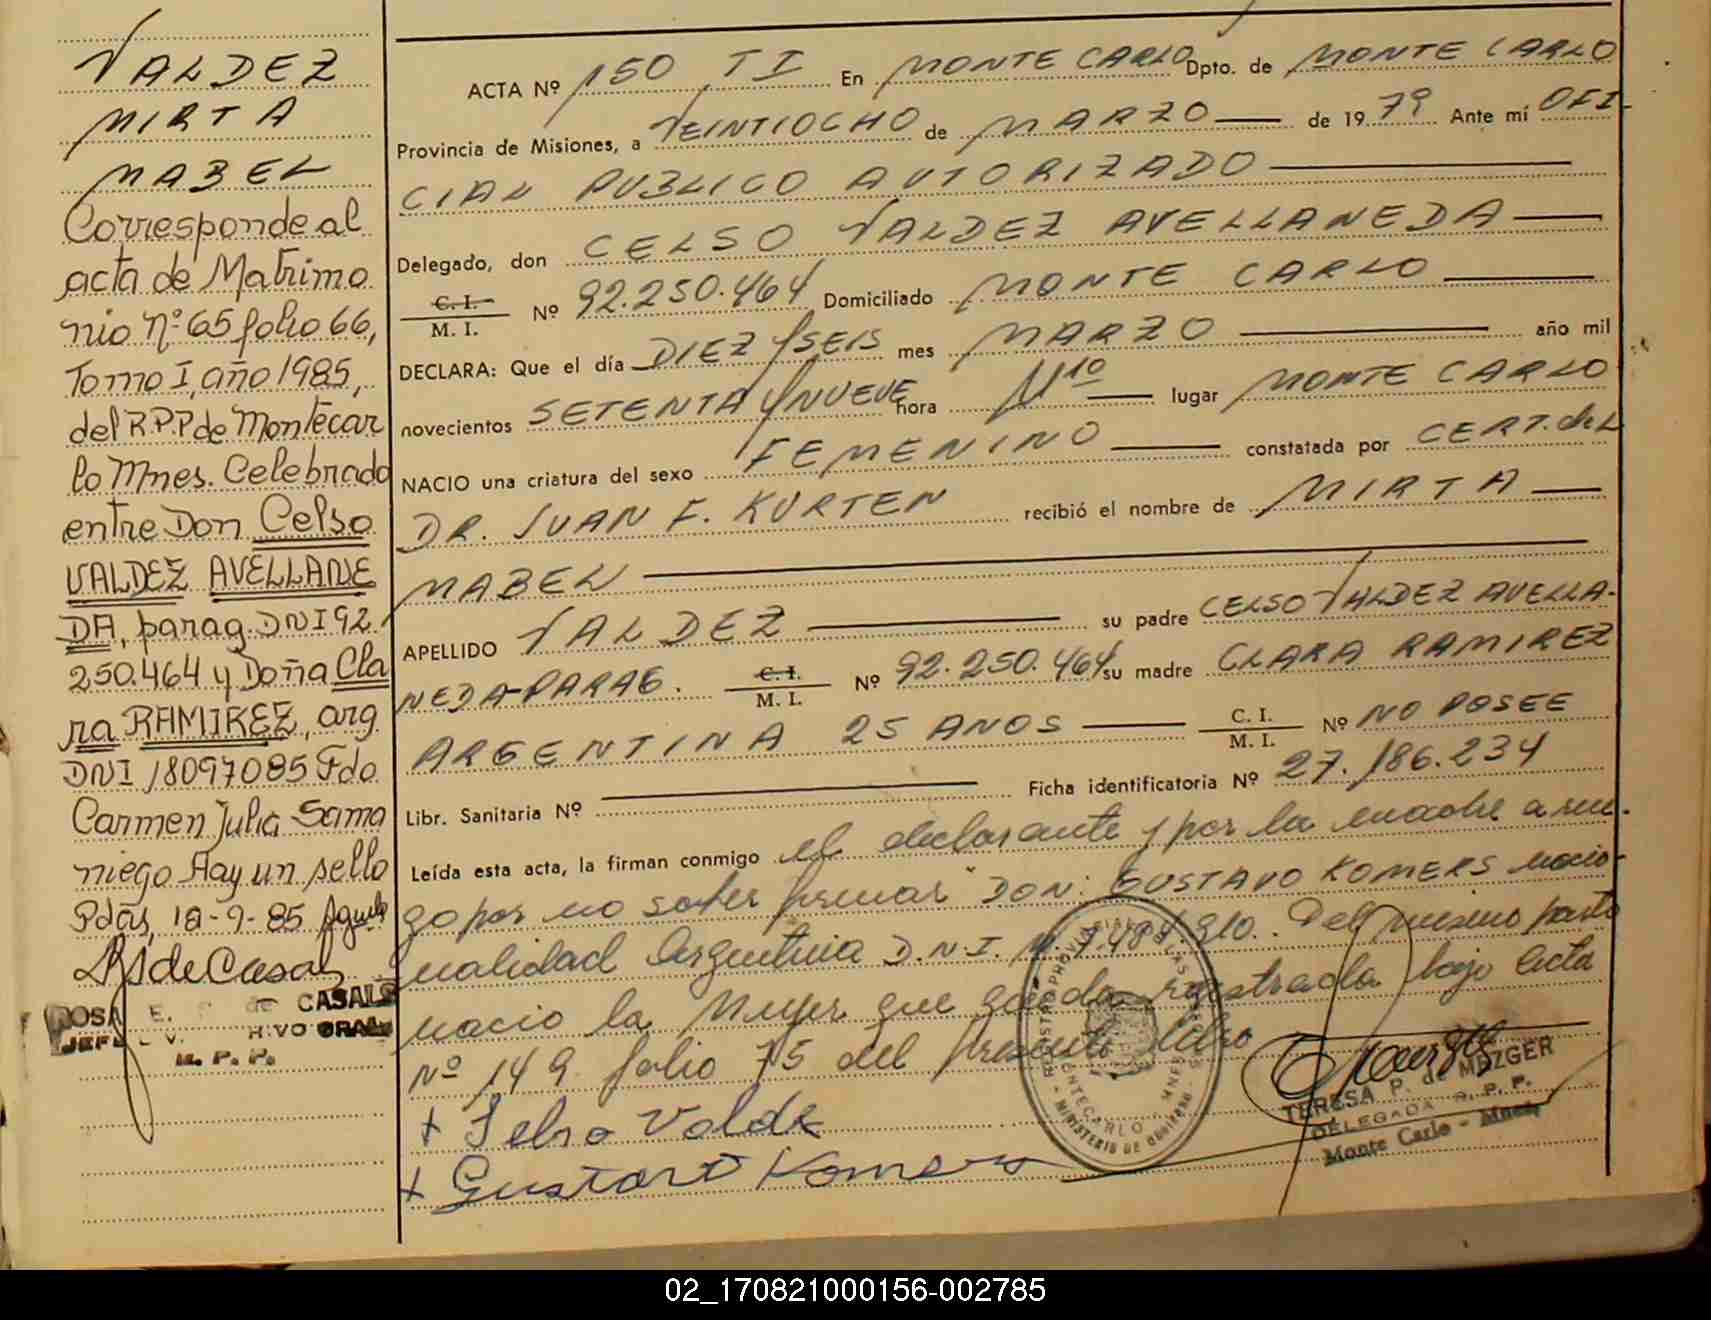 VALDEZ
MIRTA
MABEL
Corresponde al
acta de Matrimo
nio Nº 65 folio 66,
Tomo I, año 1985,
del R.P.P de Montecar
lo Mnes. Celebrado
entre Don Celso
VALDEZ AVELLANE
DA, parag. DNI 92.
250.464 y Doña Cla
ra RAMIREZ, arg
DNI 18097085 Fdo
Carmen Julia Sama
niego Hay un sello
Pdas, 12-9-85
de Casals
ROSA E. de CASALS
JEFE
R. P. P.
ACTA Nº 150 TI En MONTE CARLO Dpto. de MONTE CARLO
Provincia de Misiones, a VEINTIOCHO de MARZO de 19 79 Ante mí OFI-
CIAL PUBLICO AUTORIZADO
Delegado, don CELSO VALDEZ AVELLANEDA
C. I.
M. I. Nº 92.250.464 Domiciliado MONTE CARLO
DECLARA: Que el día DIEZ Y SEIS mes MARZO año mil
novecientos SETENTA Y NUEVE hora lugar MONTE CARLO
NACIO una criatura del sexo FEMENINO constatada por CERT. del
DR. JUAN F. KURTEN recibió el nombre de MIRTA
MABEL
APELLIDO VALDEZ su padre CELSO VALDEZ AVELLA-
NEDA-PARAG. C. I. M. I. Nº 92.250.464 su madre CLARA RAMIREZ
ARGENTINA 25 AÑOS C. I. M. I. Nº NO POSEE
Libr. Sanitaria Nº Ficha identificatoria Nº 27.186.234
Leída esta acta, la firman conmigo el declarante y por la madre a rue-
go por no saber firmar DON: GUSTAVO KOMERS nacio-
nalidad Argentina D.N.I. Nº 7.484.910. Del mismo parto
nacio la Mujer que queda registrada bajo Acta
Nº 149 folio 75 del presente Libro
+ Selso Valdez
+ Gustavo Komers
REGISTRO PROVINCIAL DE LAS PERSONAS
MONTECARLO - MNES
MINISTERIO DE GOBIERNO
TERESA P. de MEZGER
DELEGADA R. P. P.
Monte Carlo - Mnes.
02_170821000156-002785